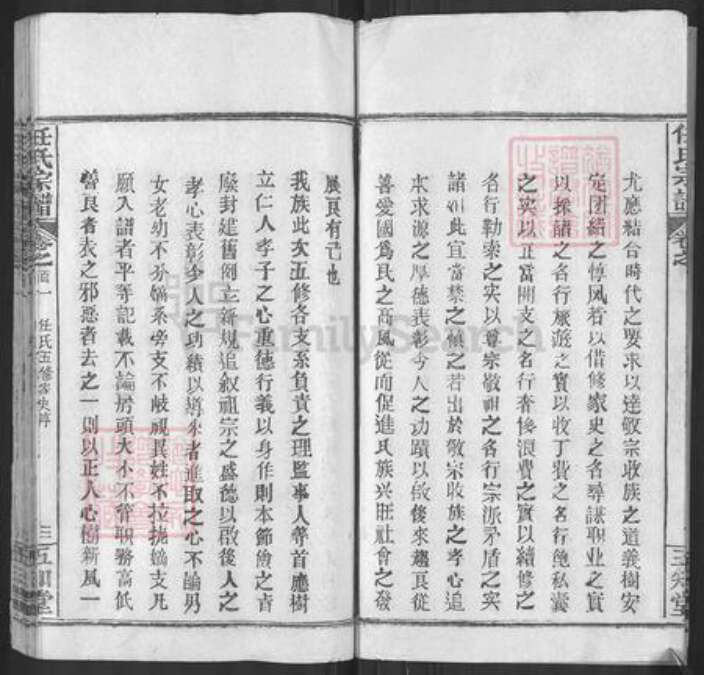 任氏宗譜
卷之
五知堂
尤應結合時代之要求以達敬宗收族之道義樹安
定團結之惇风若以借修家史之名尋謀职业之實
以採譜之名行旅遊之實以收丁費之名行飽私囊
之实以正當開支之名行奢侈浪費之實以續修之
名行勒索之实以尊宗敬祖之名行宗派矛盾之实
諸如此宜當禁之傾之若出於敬宗收族之孝心追
本求源之厚德表彰今人之功蹟以啟後來趨良從
善爱國爲民之高風從而促進氏族兴旺社會之發
展良有已也
我族此次五修各支系負責之理監事人等首應樹
立仁人孝子之心重德行義以身作則本節儉之旨
廢封建舊例立新規追叙祖宗之盛德以啟後人之
孝心表彰今人之功績以導來者進取之心不論男
女老幼不分嫡系旁支不岐視異姓不拉拢嫡支凡
願入譜者平等記載不論房頭大小不等职務高低
善良者表之邪惡者去之一則以正人心樹新風一
任氏宗譜
卷之首一
任氏五修宗史序
三
五知堂
FamilySearch